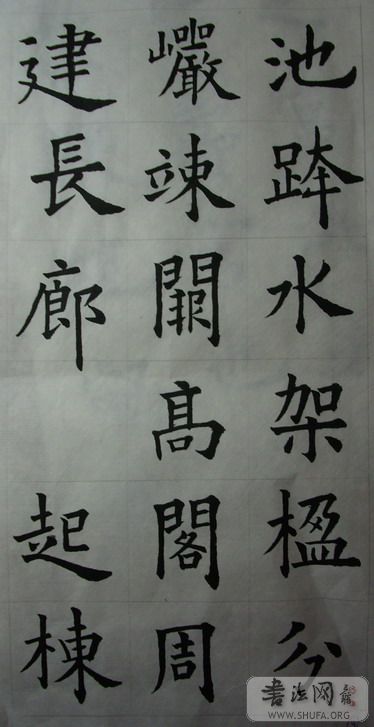 池跨水架楹分
巖竦闕髙閣周
建長廊起棟
書法网
WWW.SHUFA.ORG